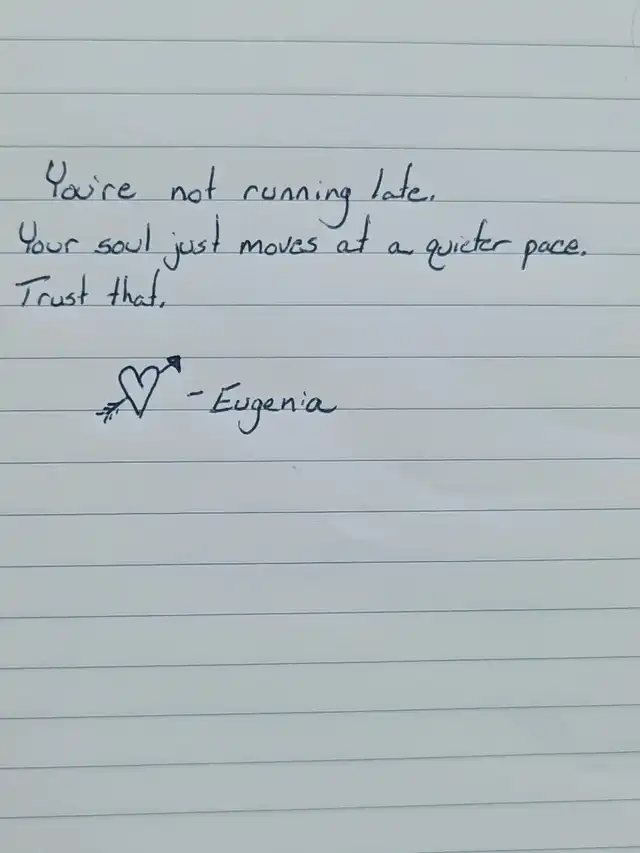 You're not running late.
Your soul just moves at a quieter pace.
Trust that.
- Eugenia